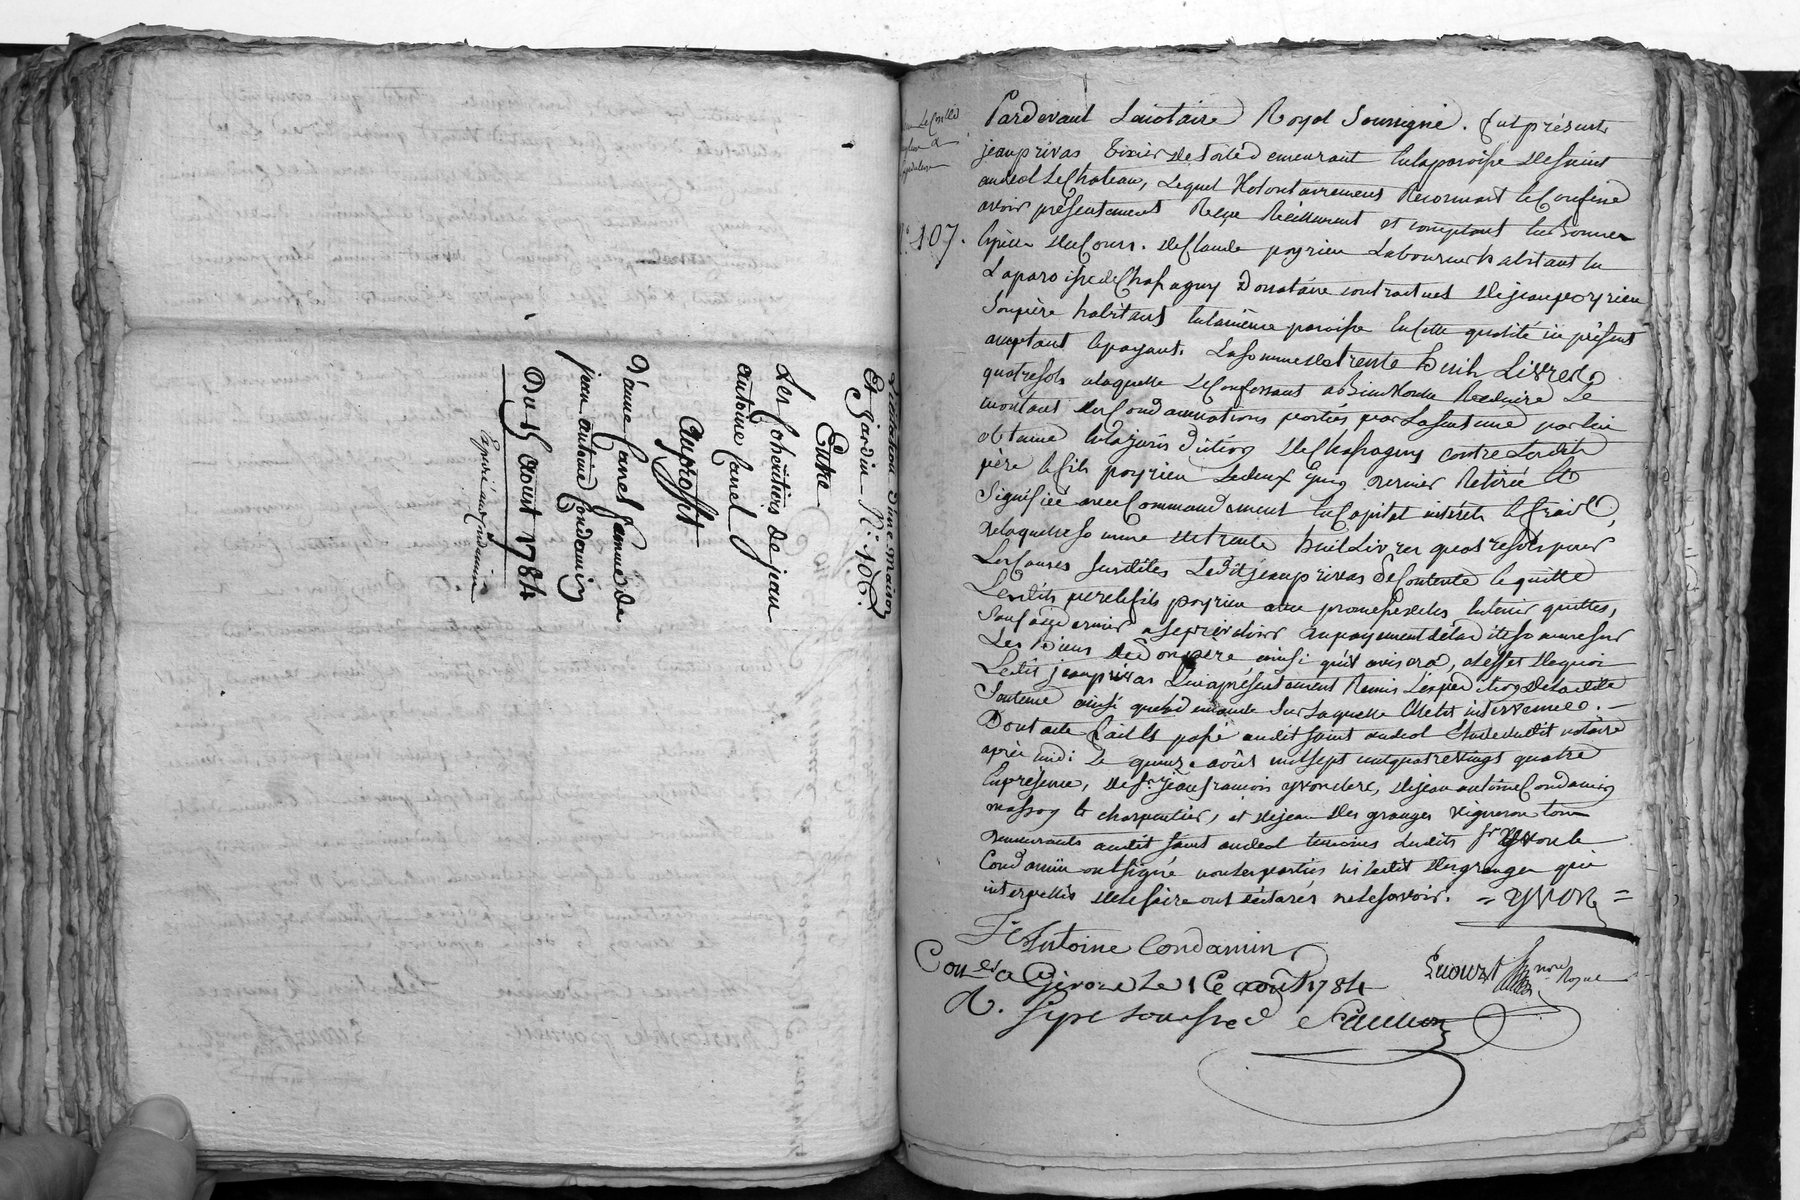 Licitation d'une maison
Et Jardin N.° 106.
Entre
Les Cohéritiers de jean
antoine Canel
Auproffit
D'anne Canel femme de
jean antoine Condamin
Du 15 aoust 1784
Expédié aud. Condamin
N.° 107.
Pardevant Lenotaire Royal Soussigné. fut présent
jean privas tixier de toile demeurant en la paroisse de saint
andeol le Chateau, Lequel Volontairement Reconnait et Confesse
avoir présentement Reçu Réellement et comptant en Bonnes
Espèces du Cours. de Claude peyrieu Laboureur habitant en
La paroisse de Chassagny Donataire contractuel de jean peyrieu
Son père habitant en la même paroisse en cette qualité ici présent
acceptant et payant. La somme de trente huit Livres
quatre sols a laquelle le Confessant a Bien Voulu Reduire Le
montant des Condamnations portées par La sentence par lui
obtenue en la juris diction de Chassagny contre Lesdits
père et fils peyrieu Le deux juin dernier Retirée et
Signifiée avec Commandement en Capital interets et fraix,
de laquelle so mme de trente huit Livres quatre sols pour
Les Causes susdites Ledit jean privas Se Contente et quitte
Lesdits pere et fils peyrieu avec promesse de les en tenir quittes,
Sauf a ce dernier a se prévaloir du payement de la dite somme sur
Les Biens de Son père ainsi qu'il avisera, a l'effet de quoi
Ledit jean privas Lui a présentement Remis L'expédition de la dite
Sentence ainsi que la demande Sur laquelle Elle est intervenue. —
Dont acte fait et passé audit saint andeol Etude dudit notaire
après midi Le quinze août mil sept cent quatre vingt quatre
En présence, de s.r jean françois yvon clerc, de jean antoine Condamin
masson et charpentier, et de jean des granges vigneron tous
demeurants audit saint andeol temoins Lesdits s.r yvon et
Condamin ont signé non les parties ni ledit desgranges qui
interpellés de le faire ont déclarés ne le savoir. = YVON =
J Antoine Condamin
Enouzt nore Royal
Con.lé a Givors Le 16 août 1784
R. sept sous six d